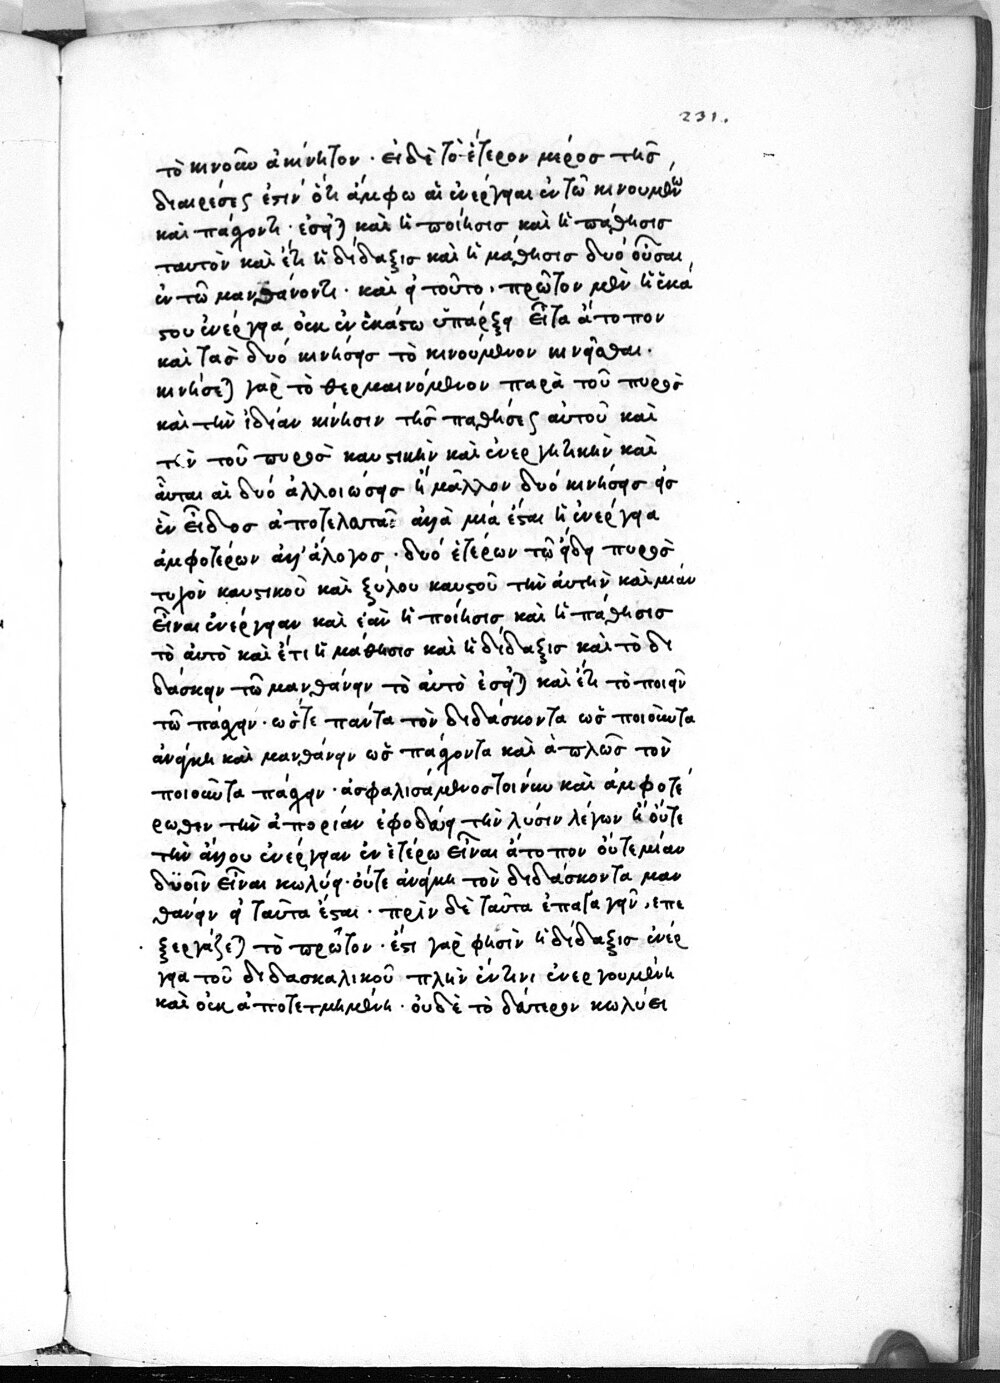 231.
τὸ κινοῦν ἀκίνητον · εἰ δὲ τὸ ἕτερον μέρος τῆς
διαιρέσεως ἐστὶν ὅτι ἄμφω αἱ ἐνέργειαι ἐν τῷ κινουμένῳ
καὶ πάσχοντι · ἔσται καὶ ἡ ποίησις καὶ ἡ πάθησις
ταυτὸν καὶ ἔτι ἡ δίδαξις καὶ ἡ μάθησις δυό οὖσαι
ἐν τῷ μανθάνοντι · καὶ εἰ τοῦτο, πρῶτον μὲν ἡ ἑκά
στου ἐνέργεια οὐκ ἐν ἑκάστω ὑπάρξει εἶτα ἄτοπον
καὶ τὰς δυό κινήσεις τὸ κινούμενον κινεῖσθαι ·
κινήσεται γὰρ τὸ θερμαινόμενον παρὰ τοῦ πυρὸς
καὶ τὴν ἰδίαν κίνησιν τῆς παθήσεως αὐτοῦ καὶ
τὴν τοῦ πυρὸς καυστικὴν καὶ ἐνεργητικὴν καὶ
αὗται αἱ δυό ἀλλοιώσεις ἢ μᾶλλον δυό κινήσεις εἰς
ἓν εἶδος ἀποτελοῦνται ἀλλὰ μία ἔσται ἡ ἐνέργεια
ἀμφοτέρων ἀλλ' ἄλογος · δυό ἑτέρων τῷ εἴδει πυρὸς
τυχὸν καυστικοῦ καὶ ξύλου καυστοῦ τὴν αὐτὴν καὶ μίαν
εἶναι ἐνέργειαν καὶ ἐὰν ἡ ποίησις καὶ ἡ πάθησις
τὸ αὐτὸ καὶ ἔτι ἡ μάθησις καὶ ἡ δίδαξις καὶ τὸ δι
δάσκειν τῷ μανθάνειν τὸ αὐτὸ ἔσται καὶ ἔτι τὸ ποιεῖν
τῷ πάσχειν · ὥστε πάντα τὸν διδάσκοντα ὡς ποιοῦντα
ἀνάγκη καὶ μανθάνειν ὡς πάσχοντα καὶ ἁπλῶς τὸν
ποιοῦντα πάσχειν · ἀσφαλισάμενος τοίνυν καὶ ἀμφοτέ
ρωθεν τὴν ἀπορίαν ἐφοδεύει τὴν λύσιν λέγων ἢ οὔτε
τὴν ἄλλου ἐνέργειαν ἐν ἑτέρω εἶναι ἄτοπον οὔτε μίαν
δυοῖν εἶναι κωλύει · οὔτε ἀνάγκη τὸν διδάσκοντα μαν
θάνειν εἰ ταῦτα ἔσται · πρὶν δὲ ταῦτα ἐπαγαγεῖν, ἐπε
ξεργάζεται τὸ πρῶτον · ἔστι γὰρ φησὶν ἡ δίδαξις ἐνέρ
γεια τοῦ διδασκαλικοῦ πλὴν ἔν τινι ἐνεργουμένη
καὶ οὐκ ἀποτετμημένη · οὐδὲ τὸ δεύτερον κωλύει